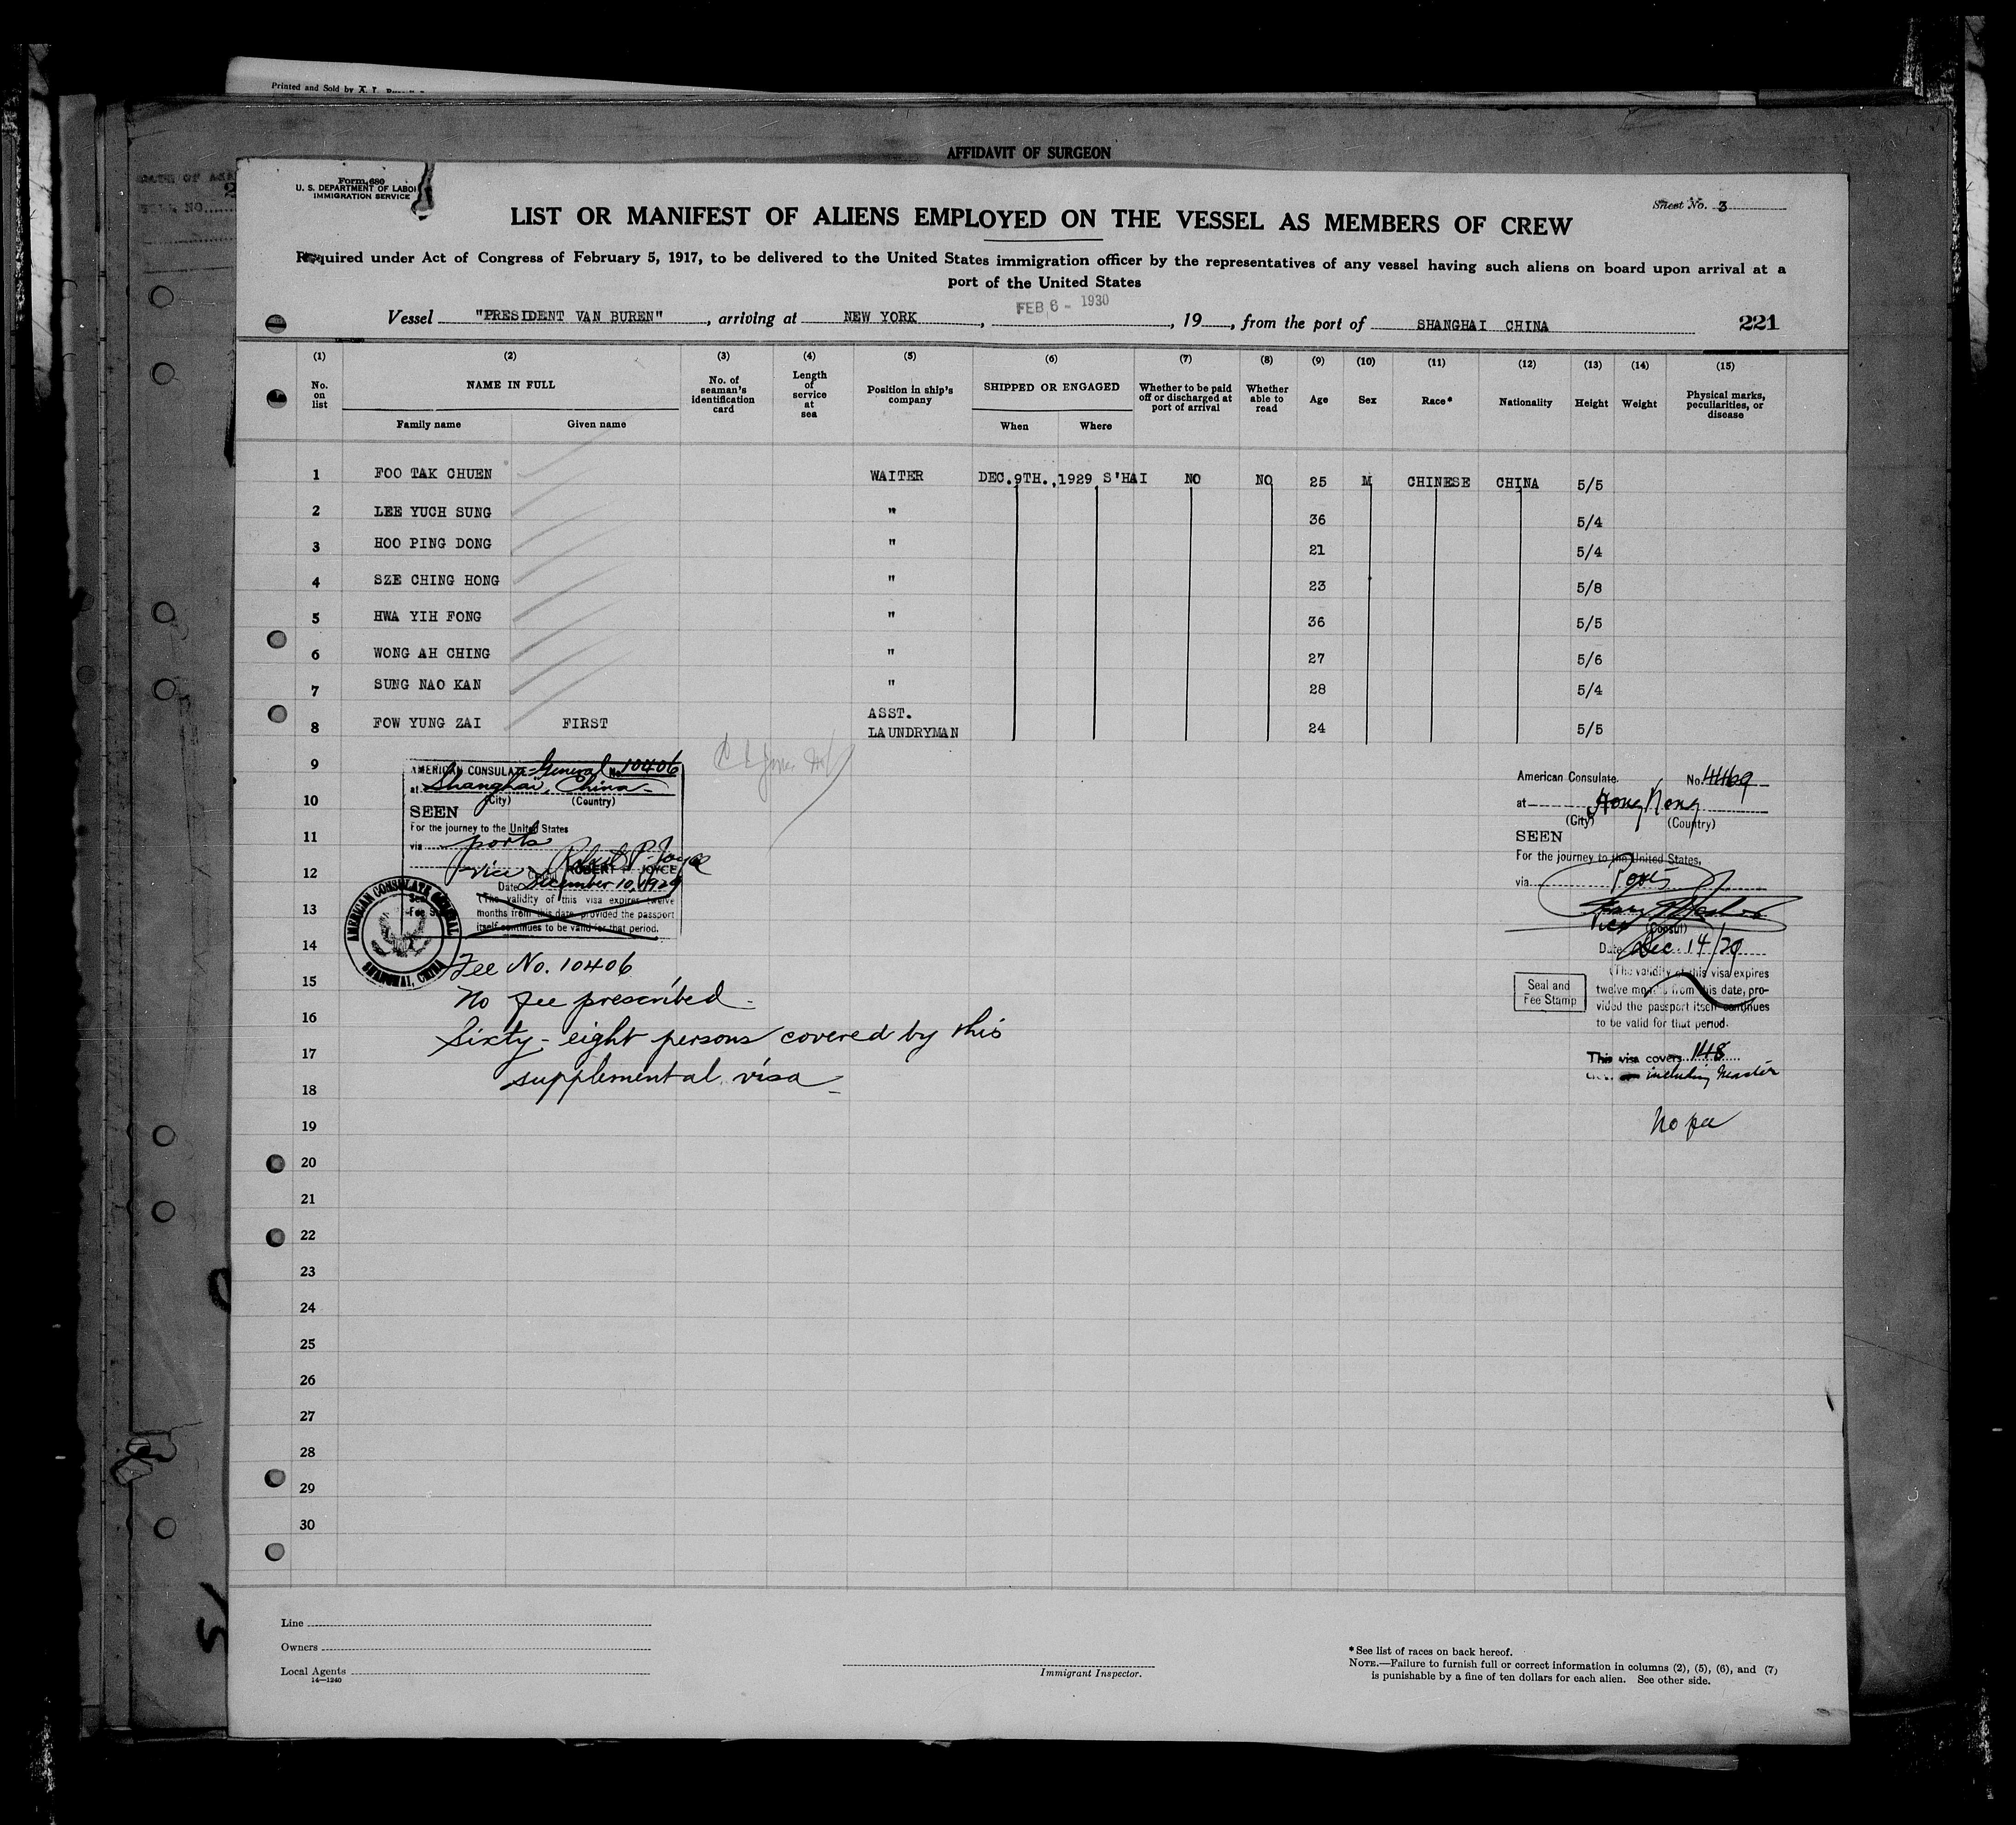 Printed and Sold by
AFFIDAVIT OF SURGEON
Form 680
U. S. DEPARTMENT OF LABOR
IMMIGRATION SERVICE
Sheet No. 3
LIST OR MANIFEST OF ALIENS EMPLOYED ON THE VESSEL AS MEMBERS OF CREW
Required under Act of Congress of February 5, 1917, to be delivered to the United States immigration officer by the representatives of any vessel having such aliens on board upon arrival at a
port of the United States
FEB 6 - 1930
Vessel "PRESIDENT VAN BUREN", arriving at NEW YORK, , 19 , from the port of SHANGHAI CHINA 221
(1) (2) (3) (4) (5) (6) (7) (8) (9) (10) (11) (12) (13) (14) (15)
No. on list NAME IN FULL Family name Given name No. of seaman's identification card Length of service at sea Position in ship's company SHIPPED OR ENGAGED When Where Whether to be paid off or discharged at port of arrival Whether able to read Age Sex Race* Nationality Height Weight Physical marks, peculiarities, or disease
1 FOO TAK CHUEN WAITER DEC.9TH.,1929 S'HAI NO NO 25 M CHINESE CHINA 5/5
2 LEE YUCH SUNG " 36 5/4
3 HOO PING DONG " 21 5/4
4 SZE CHING HONG " 23 5/8
5 HWA YIH FONG " 36 5/5
6 WONG AH CHING " 27 5/6
7 SUNG NAO KAN " 28 5/4
8 FOW YUNG ZAI FIRST ASST. LAUNDRYMAN 24 5/5
9
10
11
12
13
14
15
16
17
18
19
20
21
22
23
24
25
26
27
28
29
30
AMERICAN CONSULATE General No. 10406
at Shanghai, China
(City) (Country)
SEEN
For the journey to the United States
via ports
Robert P. Joyce
Vice Consul ROBERT P. JOYCE
Date December 10, 1929
(The validity of this visa expires twelve
months from this date, provided the passport
itself continues to be valid for that period.
AMERICAN CONSULATE GENERAL
SHANGHAI, CHINA
Fee No. 10406
No fee prescribed
Sixty-eight persons covered by this
supplemental visa
American Consulate. No. 4469
at Hong Kong
(City) (Country)
SEEN
For the journey to the United States,
via Ports
Vice (Consul)
Date Dec 14/29
(The validity of this visa expires
twelve months from this date, pro-
vided the passport itself continues
to be valid for that period.
Seal and
Fee Stamp
This visa covers 148
including Master
No fee
Line
Owners
Local Agents
14—1240
Immigrant Inspector.
*See list of races on back hereof.
NOTE.—Failure to furnish full or correct information in columns (2), (5), (6), and (7)
is punishable by a fine of ten dollars for each alien. See other side.